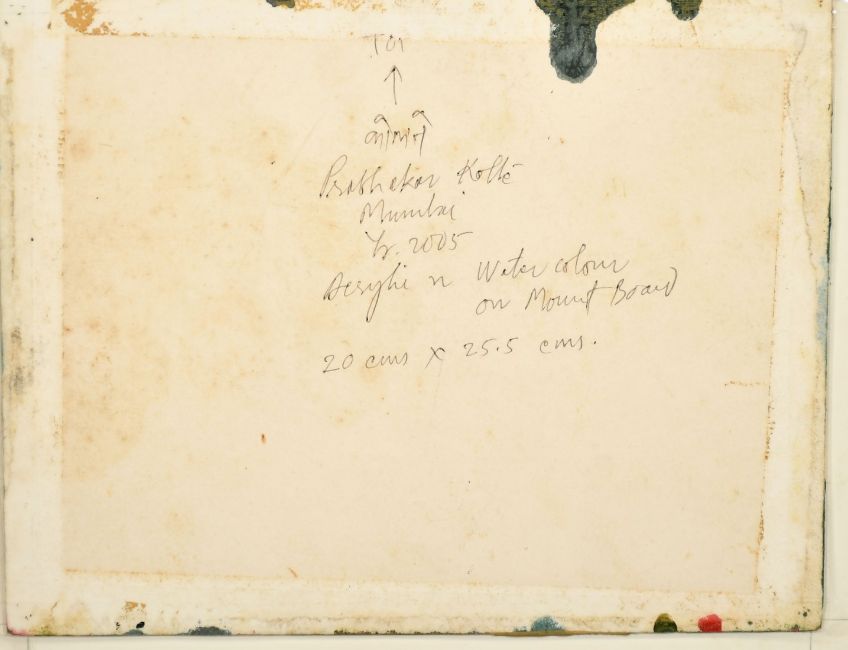 TOP
↑
Prabhakar Kolte
Mumbai
Yr. 2005
Acrylic n Water colour
on Mount Board
20 cms x 25.5 cms.